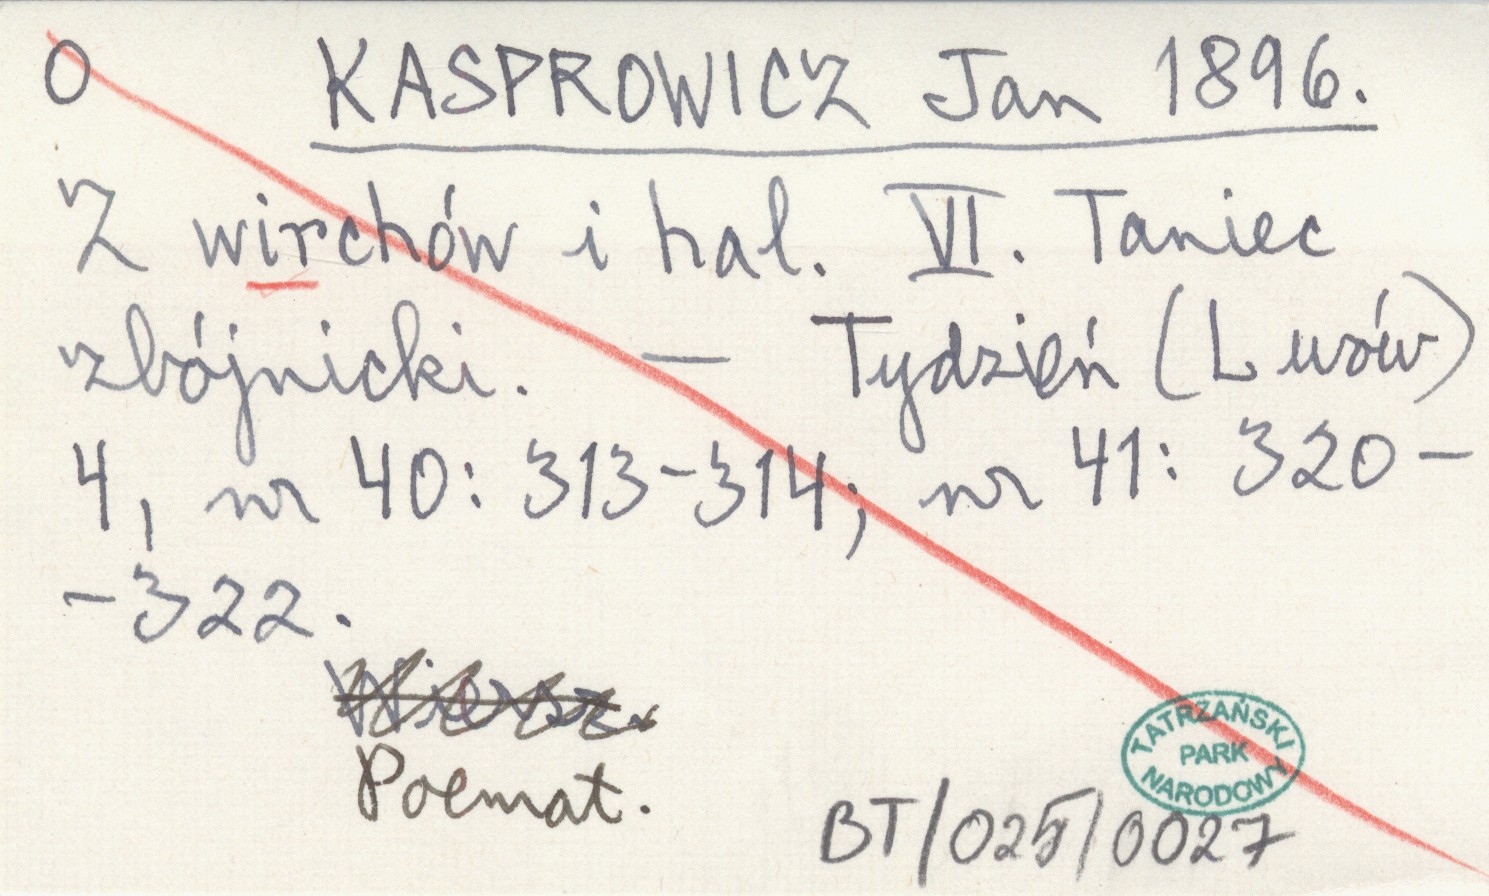 O KASPROWICZ Jan 1896.
Z wirchów i hal. VI. Taniec
zbójnicki. — Tydzień (Lwów)
4, nr 40: 313-314; nr 41: 320-
-322.
Wiersz.
Poemat.
TATRZAŃSKI
PARK
NARODOWY
BT/025/0027